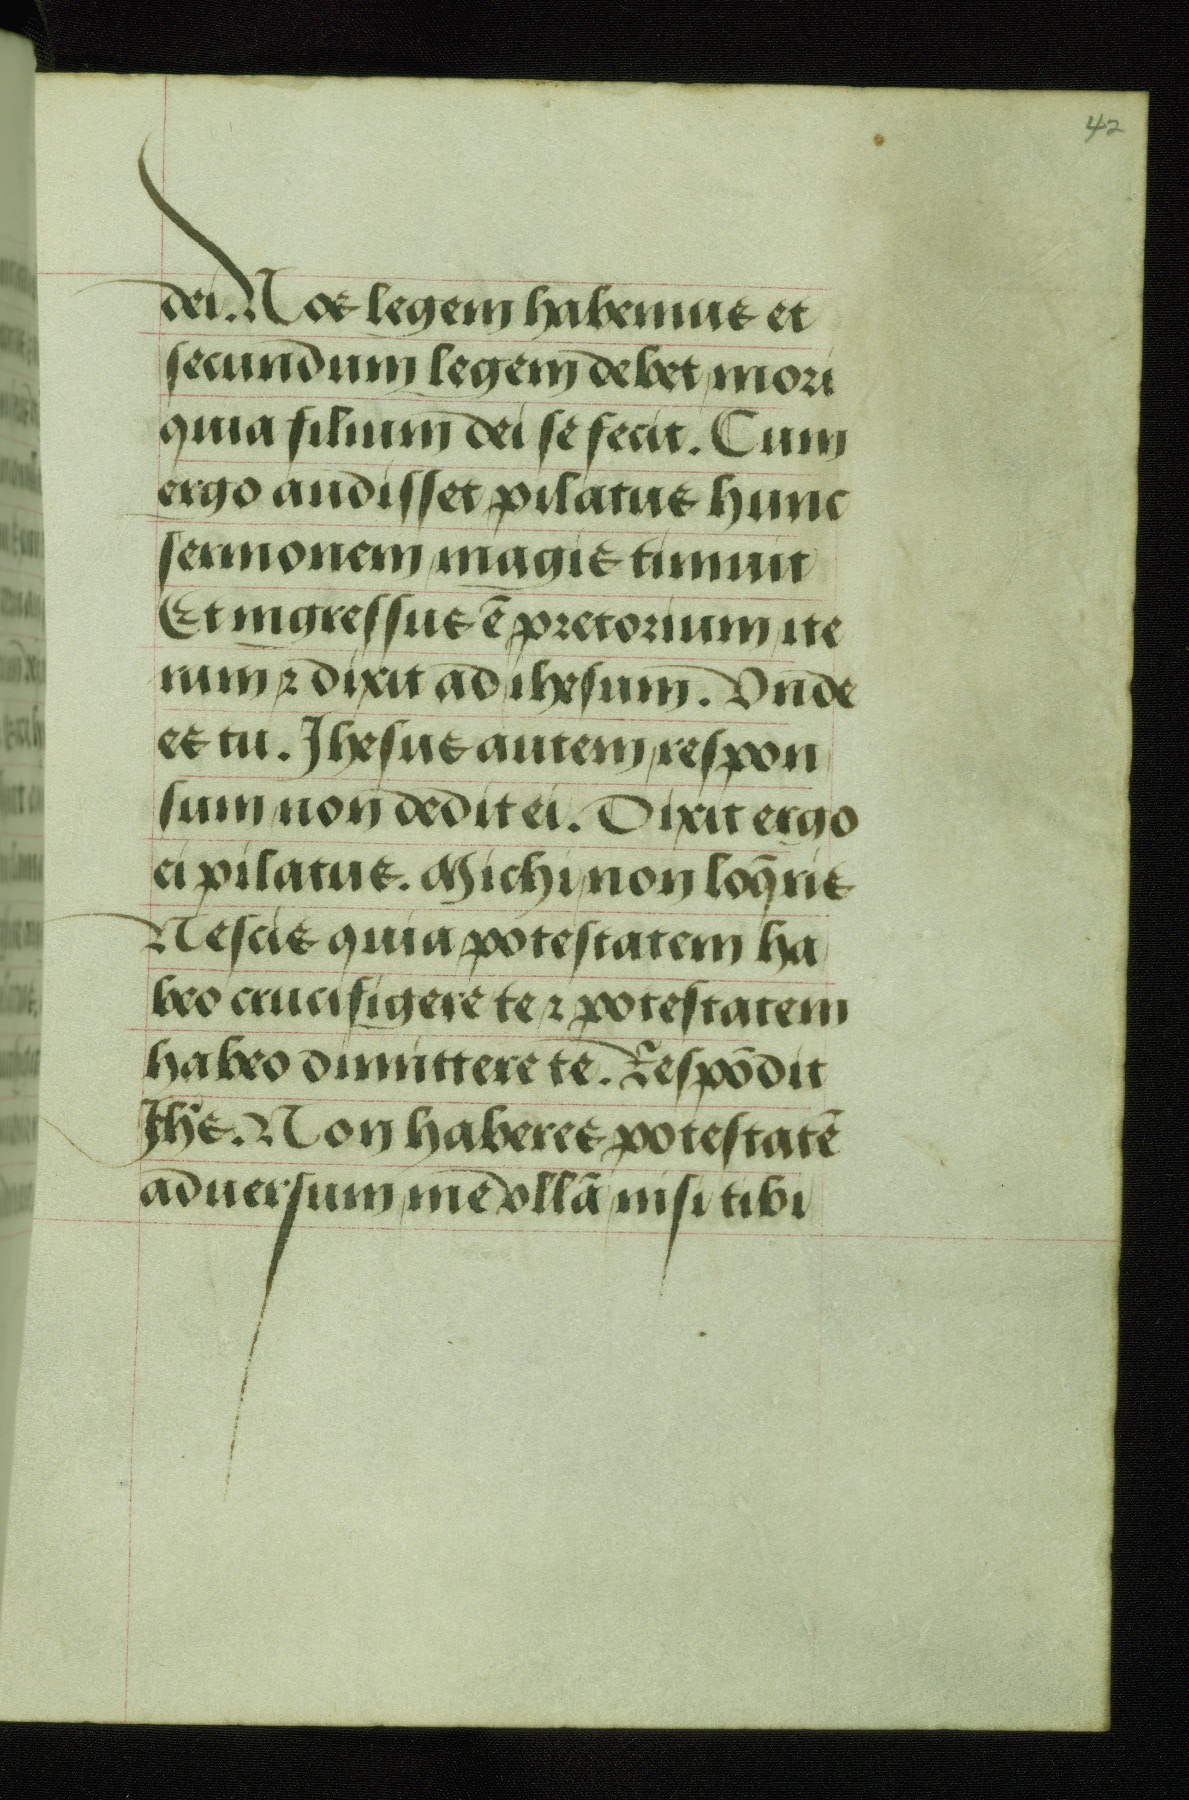 42
dei. Nos legem habemus et
secundum legem debet mori
quia filium dei se fecit. Cum
ergo audisset pilatus hunc
sermonem magis timuit
Et ingressus ē pretorium ite
rum ⁊ dixit ad ihesum. Vnde
es tu. Jhesus autem respon
sum non dedit ei. Dixit ergo
ei pilatus. Michi non loq̄ris
Nescis quia potestatem ha
beo crucifigere te ⁊ potestatem
habeo dimittere te. Respōdit
Jh̄s. Non haberes potestatē
aduersum me vllā nisi tibi